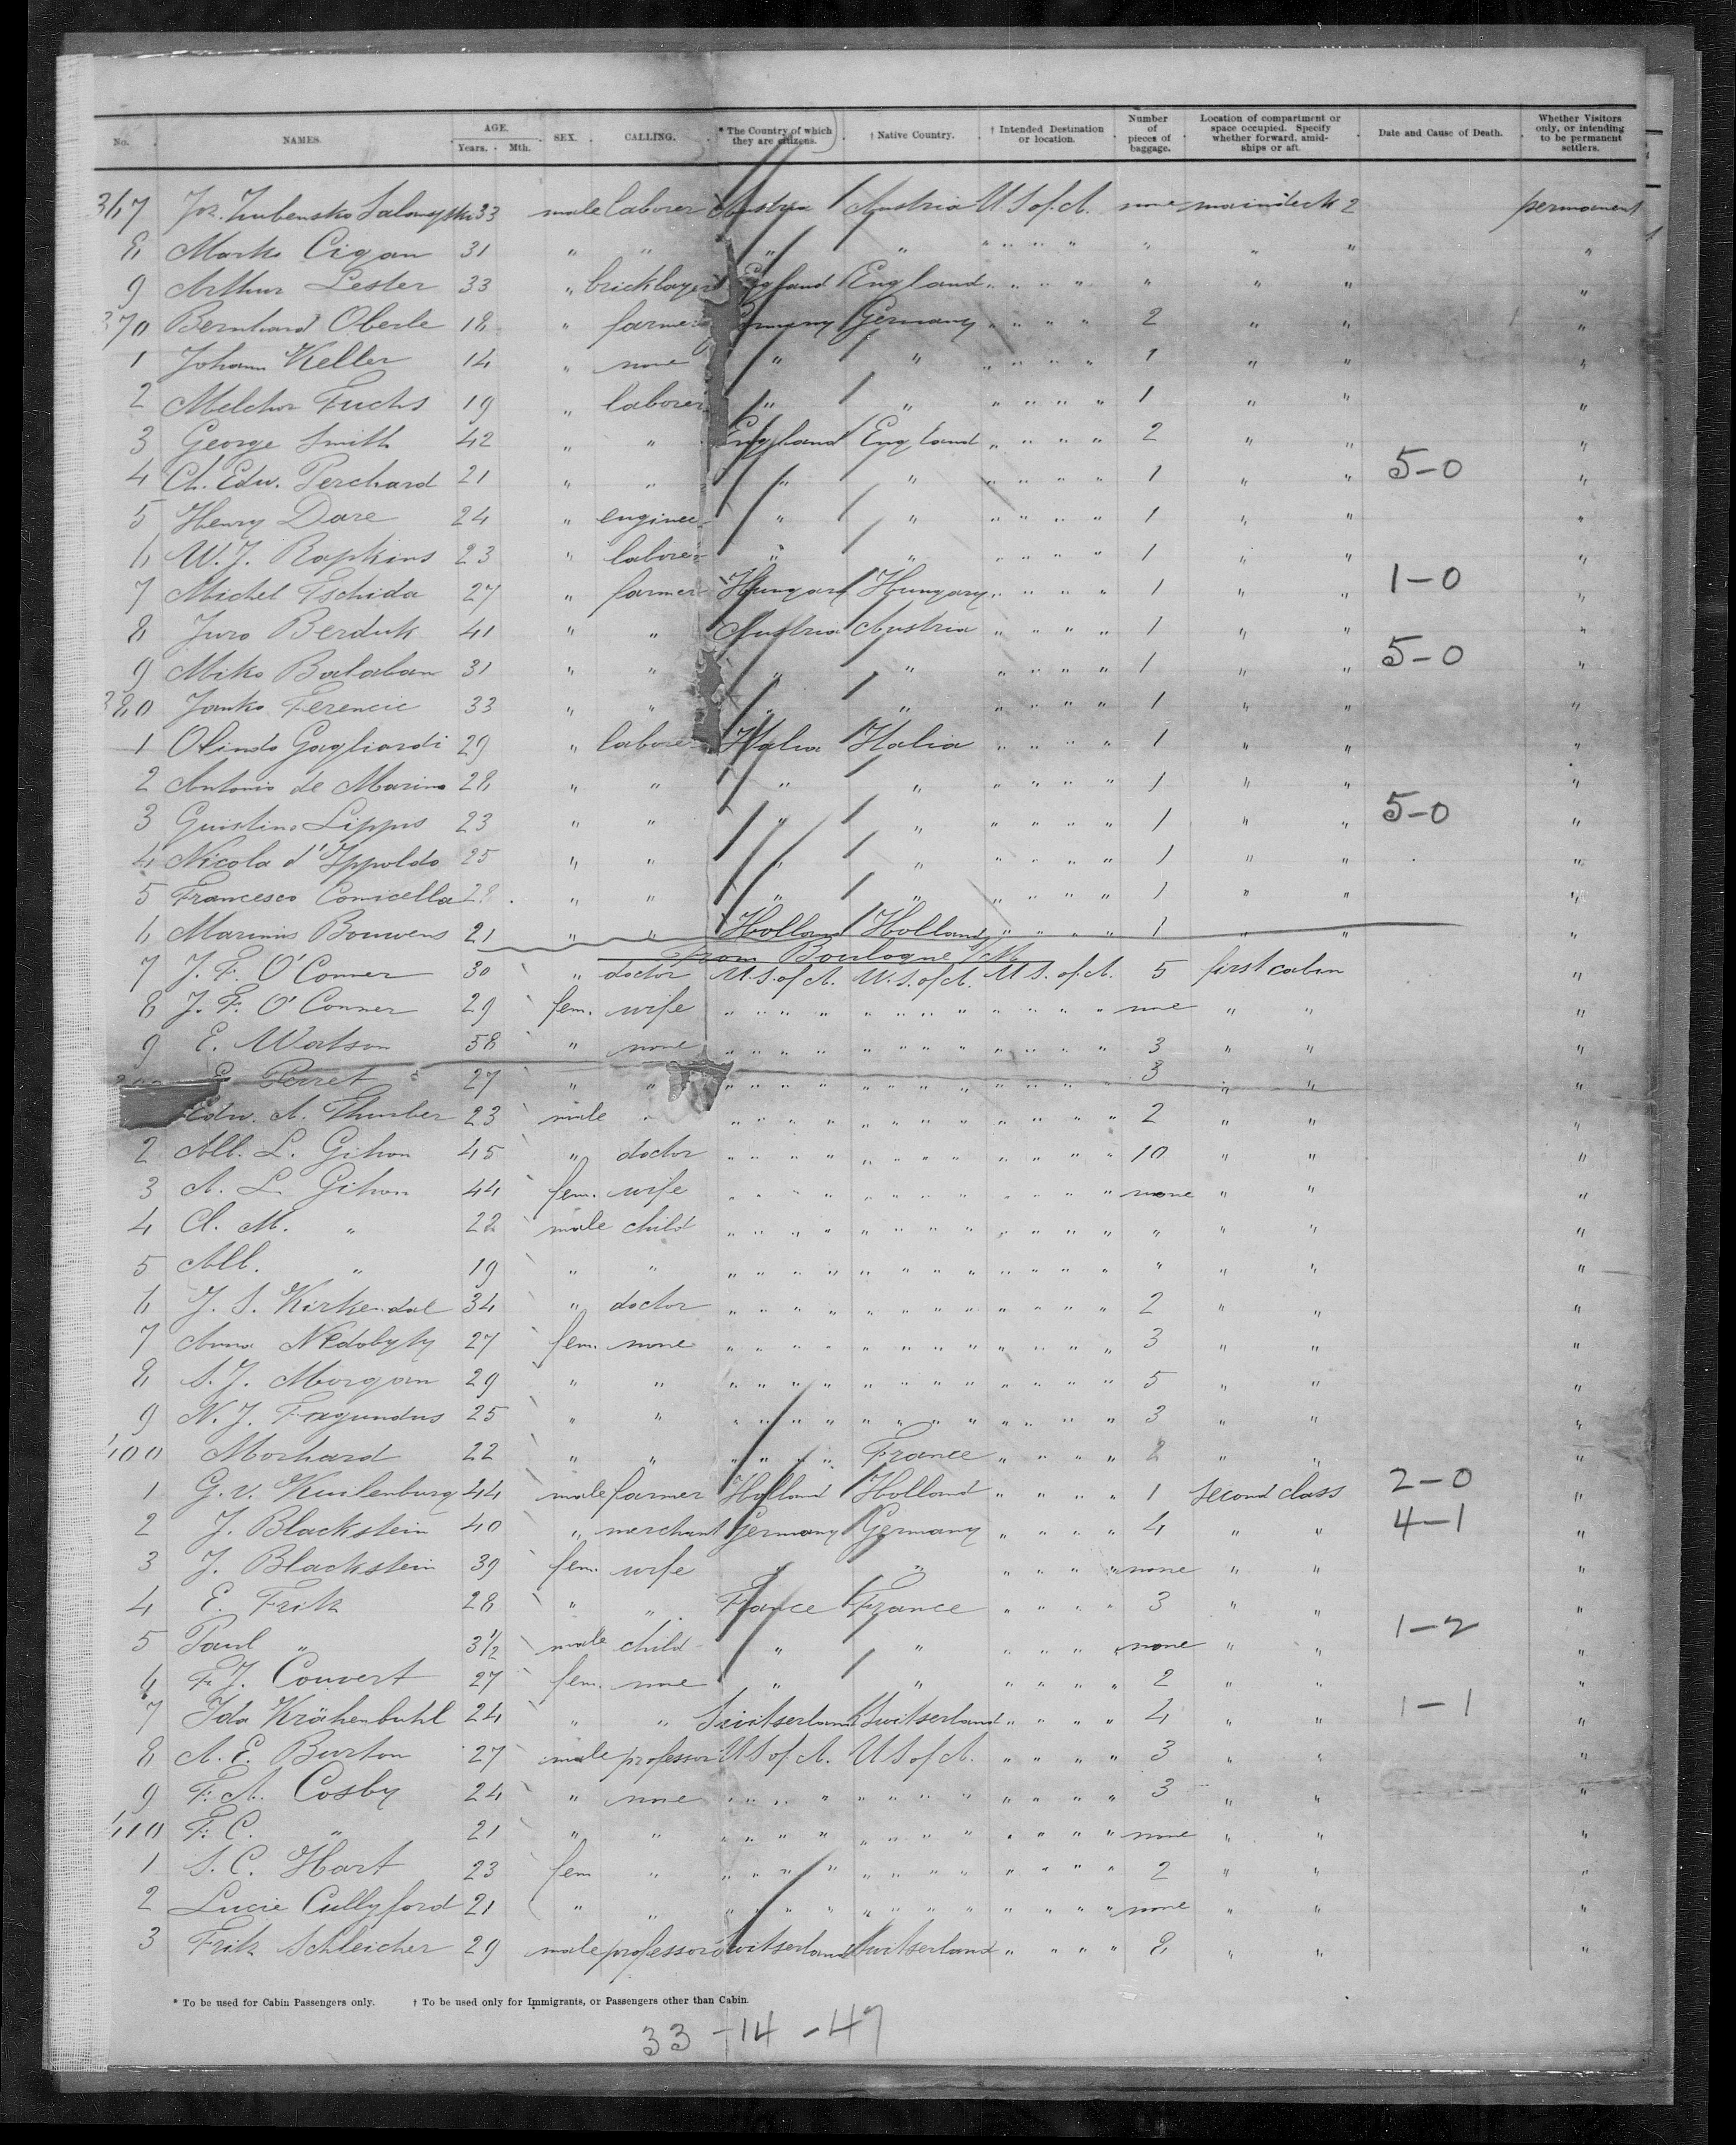 No. NAMES. AGE. Years. Mth. SEX. CALLING. * The Country of which they are citizens. † Native Country. † Intended Destination or location. Number of pieces of baggage. Location of compartment or space occupied. Specify whether forward, amidships or aft. Date and Cause of Death. Whether Visitors only, or intending to be permanent settlers.
33 male laborer Austria Austria U.S. of A. none maindeck 2 permanent
8 Marko Cigan 31 " " " " " " " " " " " "
9 Arthur Lester 33 " bricklayer England England " " " " " " " "
370 Bernhard Oberle 18 " farmer Germany Germany " " " " 2 " " "
1 Johann Keller 14 " none " " " " " " 1 " " "
2 Melchor Fuchs 19 " laborer " " " " " " 1 " " "
3 George Smith 42 " " England England " " " " 2 " " "
4 Ch. Edw. Perchard 21 " " " " " " " " 1 " " 5-0 "
5 Henry Dare 24 " engineer " " " " " " 1 " " "
6 W. J. Rapkins 23 " laborer " " " " " " 1 " " "
7 Michel Tschida 27 " farmer Hungary Hungary " " " " 1 " " 1-0 "
8 Juro Berduk 41 " " Austria Austria " " " " 1 " " "
9 Miko Balaban 31 " " " " " " " " 1 " " 5-0 "
380 Janko Ferencic 33 " " " " " " " " 1 " " "
1 Olindo Gagliardi 29 " laborer Italia Italia " " " " 1 " " "
2 Antonio de Marino 28 " " " " " " " " 1 " " "
3 Guistino Lippis 23 " " " " " " " " 1 " " 5-0 "
4 Nicola d'Ippoldo 25 " " " " " " " " 1 " " "
5 Francesco Comicella 28 " " " " " " " " 1 " " "
6 Marinus Bouwens 21 " " Holland Holland " " " " 1 " " "
From Boulogne s/M
7 J. F. O'Conner 30 " doctor U.S. of A. U.S. of A. U.S. of A. 5 first cabin "
8 J. F. O'Conner 29 fem. wife " " " " " " " " " " " " none " " "
9 E. Watson 58 " none " " " " " " " " " " " " 3 " " "
Perret 27 " " " " " " " " " " " " " " 3 " " "
Edw. A. Thurber 23 male " " " " " " " " " " " " " 2 " " "
2 Alb. L. Gihon 45 " doctor " " " " " " " " " " " " 10 " " "
3 A. L. Gihon 44 fem. wife " " " " " " " " " " " " none " " "
4 Cl. M. " 22 male child " " " " " " " " " " " " " " " "
5 Alb. " 19 " " " " " " " " " " " " " " " " " "
6 J. S. Kirkendal 34 " doctor " " " " " " " " " " " " 2 " " "
7 Anna Nedobyty 27 fem. none " " " " " " " " " " " " 3 " " "
8 S. J. Morgan 29 " " " " " " " " " " " " " " 5 " " "
9 N. J. Fagundus 25 " " " " " " " " " " " " " " 3 " " "
400 Morhard 22 " " " " " " France " " " " 2 " " "
1 G. v. Kuilenburg 44 male farmer Holland Holland " " " " 1 second class 2-0 "
2 J. Blackstein 40 " merchant Germany Germany " " " " 4 " " 4-1 "
3 J. Blackstein 39 fem. wife " " " " " " none " " "
4 E. Fritz 28 " " France France " " " " 3 " " "
5 Paul " 3½ male child " " " " " " none " " 1-2 "
6 F. J. Couvert 27 fem. none " " " " " " 2 " " "
7 Ida Krähenbuhl 24 " " Switserland Switserland " " " " 4 " " 1-1 "
8 A. E. Burton 27 male professor U S of A. U S of A. " " " " 3 " " "
9 F. A. Cosby 24 " none " " " " " " " " " " " " 3 " " "
410 F. C. " 21 " " " " " " " " " " " " " " none " " "
1 S. C. Hart 23 fem " " " " " " " " " " " " " 2 " " "
2 Lucie Cullyford 21 " " " " " " " " " " " " " " none " " "
3 Fritz Schleicher 29 male professor Switserland Switserland " " " " 8 " " "
* To be used for Cabin Passengers only. † To be used only for Immigrants, or Passengers other than Cabin.
33 - 14 - 47